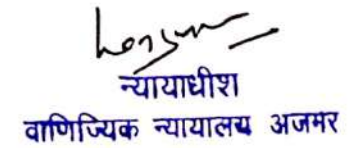 न्यायाधीश
वाणिज्यिक न्यायालय अजमेर